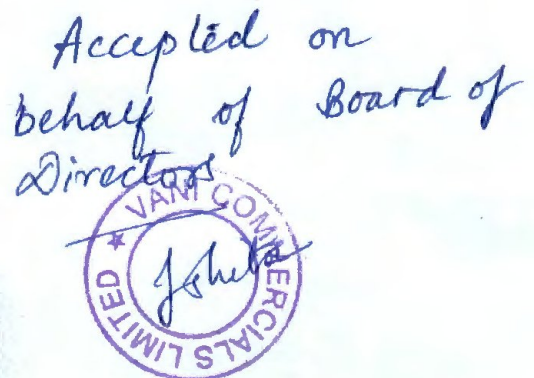 Accepted on
behalf of Board of
Directors
★ VANI COMMERCIALS LIMITED